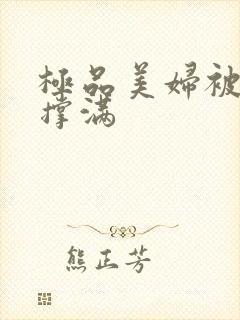 極品美婦被
撑满
熊正芳